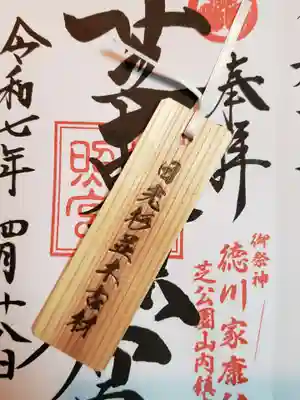 奉拝
御祭神
徳川家康公
芝公園山内鎮
日光杉並木古材
芝東
令和七年四月十八日